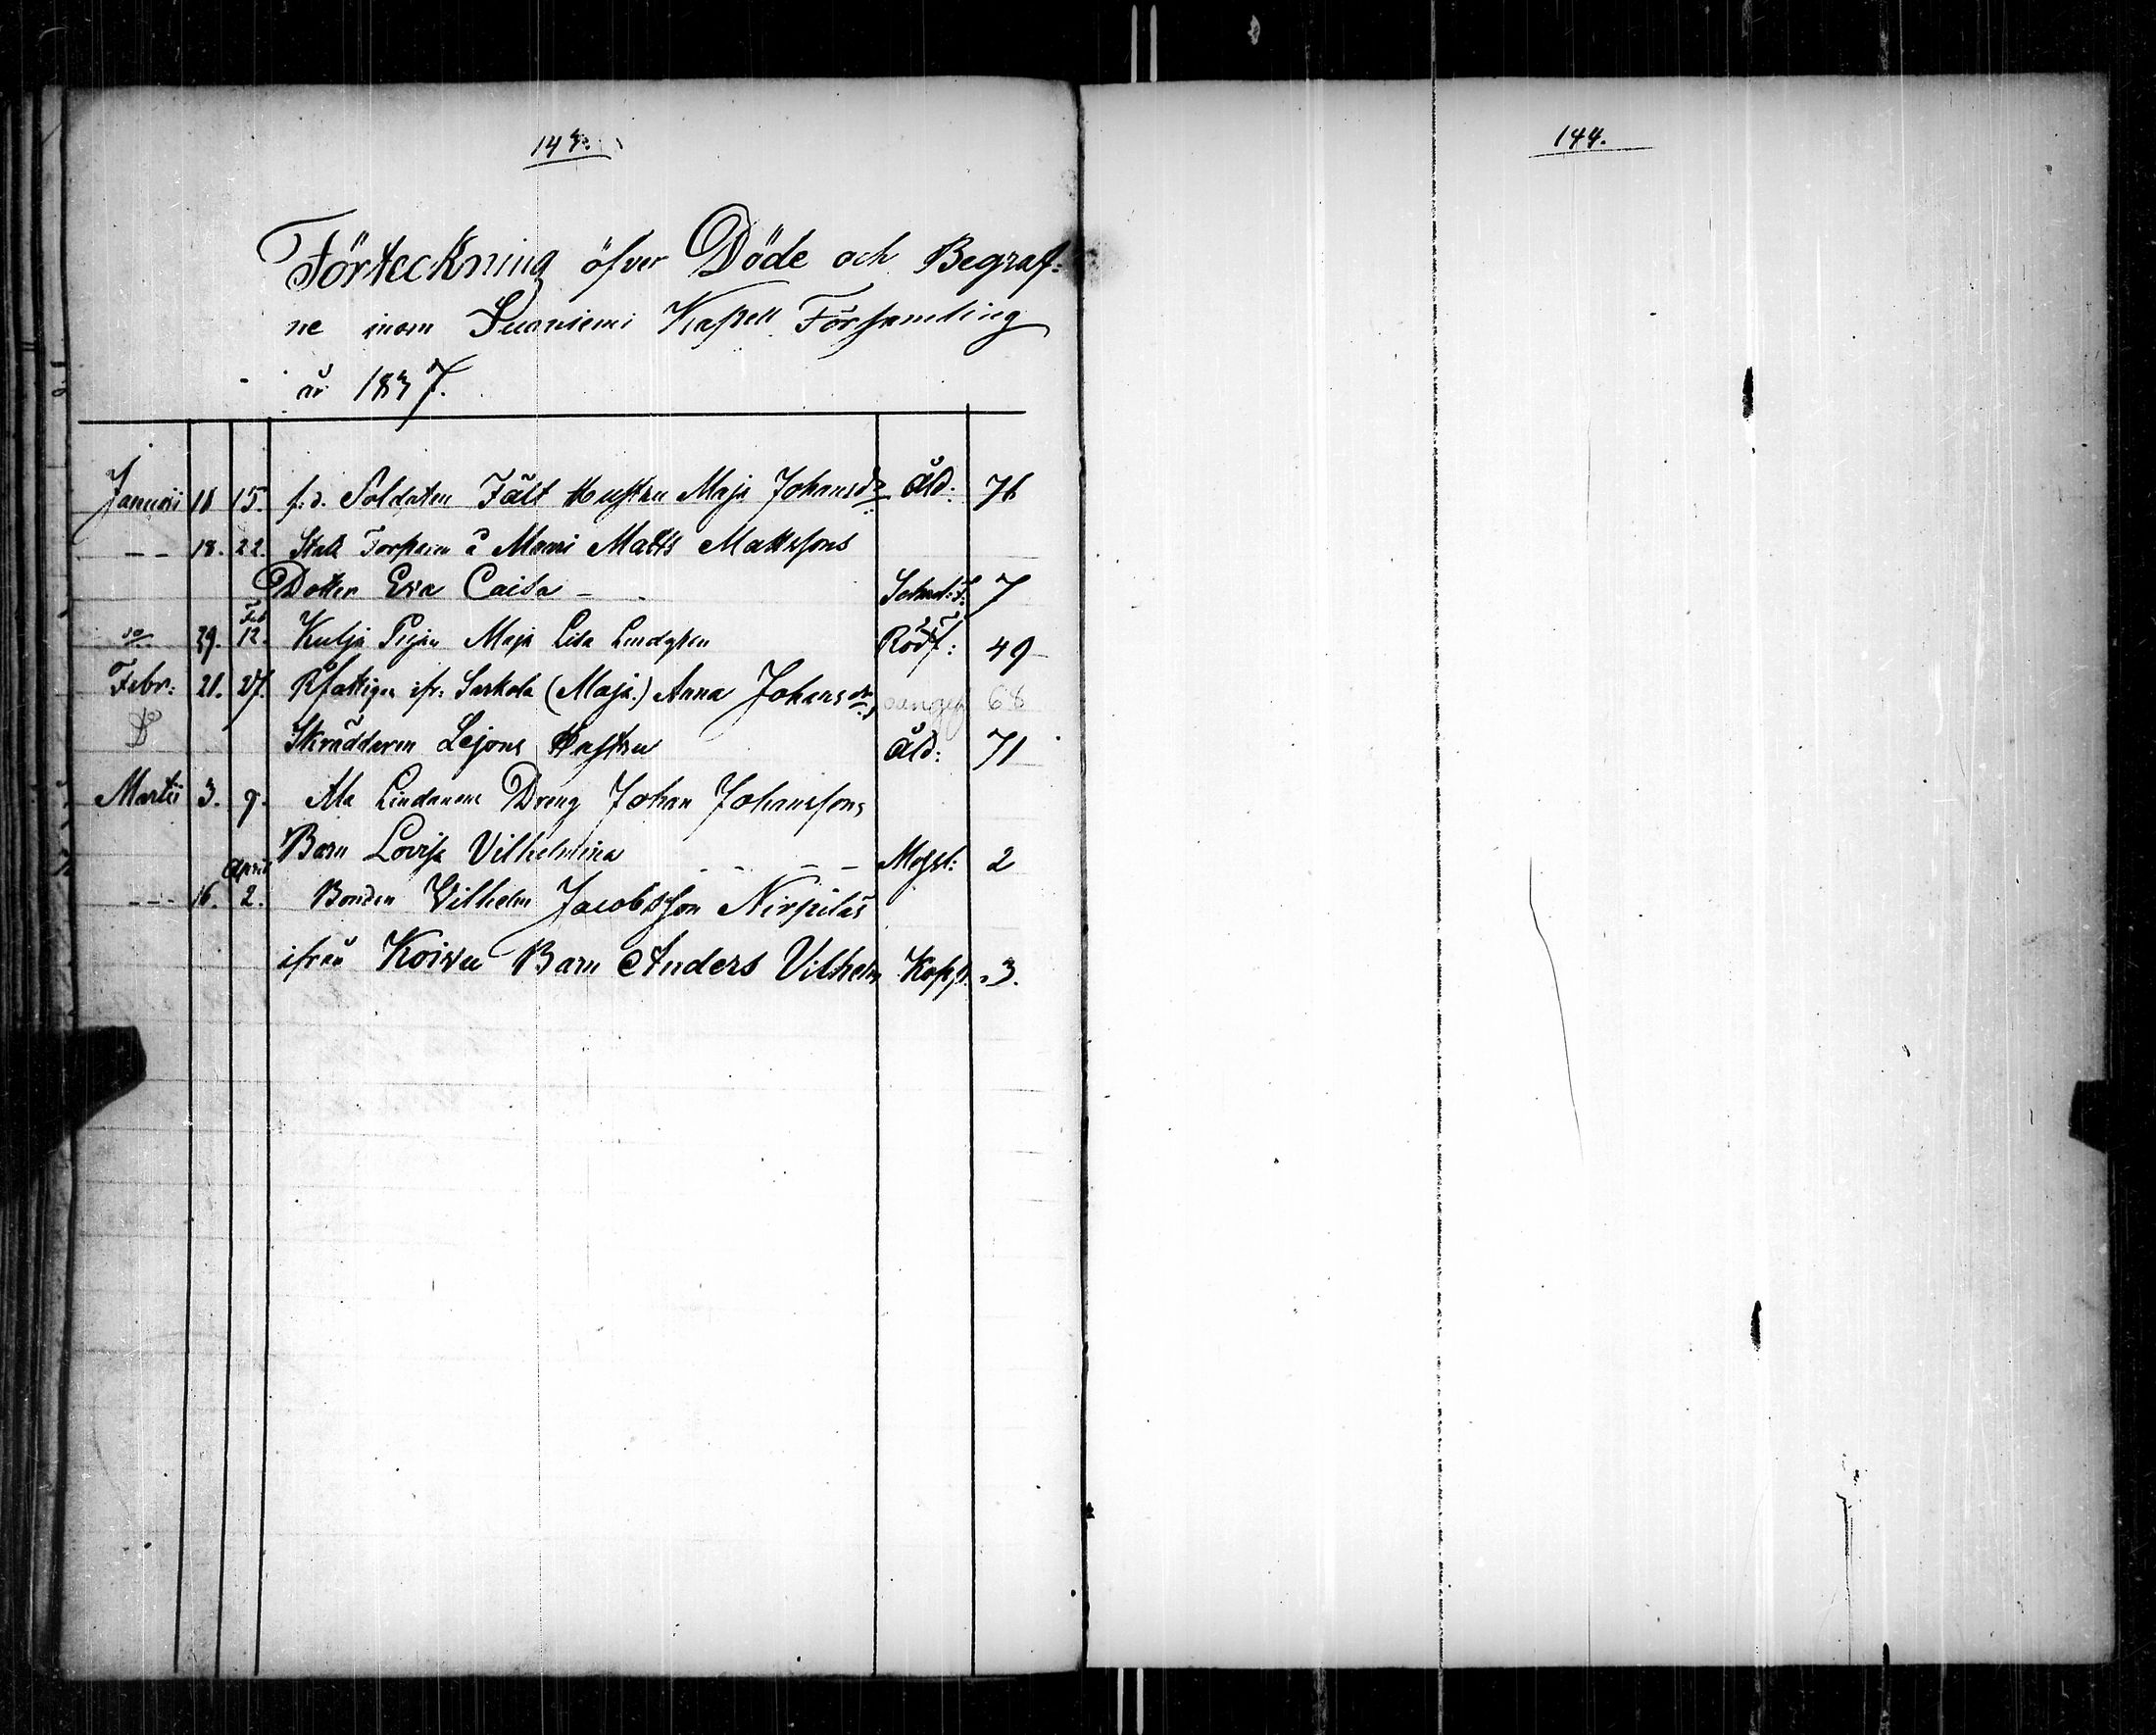 143.
Förteckning öfver Döde och Begraf:
ne inom Suoniemi Kapell Församling
år 1837.
Januarii 11 15. f:d. Soldaten Fält Hustru Maja Johansdr Åld: 76
-- 18. 22. Stat Torparen å Matts Mattssons
Dotter Eva Caisa - 7
do 29. Feb 12. Kulju Pigan Maja Lisa Lindgren Rödf: 49
Febr: 21. 27. Rfattiga ifr: Sarkola (Maja.) Anna Johansdr, oangif 68
D Skräddaren Lejons Hustru Åld: 71
Martii 3. 9. Ala Lindanens Dreng Johan Johanssons
Barn Lovisa Vilhelmina - - - - Mässl: 2
--- 16. April 2. Bonden Vilhelm Jacobsson Nirpiläs
ifrån Koivu Barn Anders Vilhelm Kopp. 3.
144.